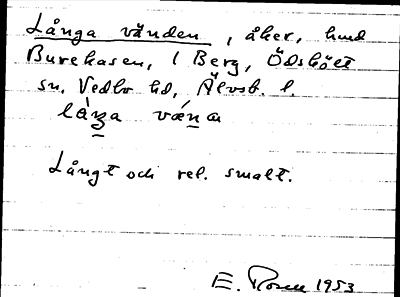 Långa vänden, åker, hmd
Burehasen, 1 Berg, Ödskölt
sn. Vedbo hd, Älvsb. l.
låŋa væna
Långt och rel. smalt.
E. Rosen 1953